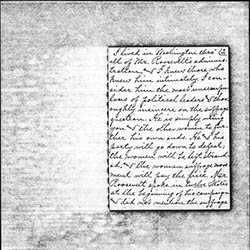 I lived in Washington thro' (2
all of Mr. Roosevelt's adminis-
tration, & I knew those who
knew him intimately. I con-
sider him the most unscrupu-
lous of political leaders & thor-
oughly insincere on the suffrage
question. He is simply using
you & the other women to fur-
ther his own ends. He & his
party will go down to defeat,
the women will be left strand-
ed, & the woman suffrage move-
ment will pay the price. Mr.
Roosevelt spoke in twelve states
at the beginning of his campaign
& did not mention the suffrage